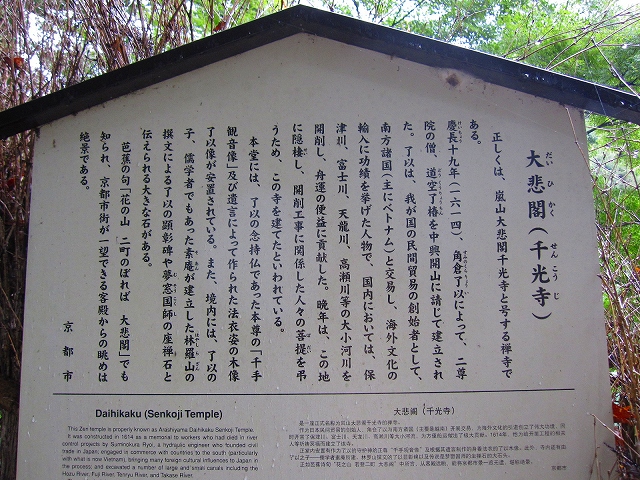 大悲閣（千光寺）
だい ひ かく せん こう じ
正しくは、嵐山大悲閣千光寺と号する禅寺で
ある。
慶長十九年（一六一四）、角倉了以によって、二尊
院の僧、道空了椿を中興開山に請じて建立され
た。了以は、我が国の民間貿易の創始者として、
南方諸国（主にベトナム）と交易し、海外文化の
輸入に功績を挙げた人物で、国内においては、保
津川、富士川、天龍川、高瀬川等の大小河川を
開削し、舟運の便益に貢献した。晩年は、この地
に隠棲し、開削工事に関係した人々の菩提を弔
うため、この寺を建てたといわれている。
本堂には、了以の念持仏であった本尊の「千手
観音像」及び遺言によって作られた法衣姿の木像
了以像が安置されている。また、境内には、了以の
子、儒学者でもあった素庵が建立した林羅山の
撰文による了以の顕彰碑や夢窓国師の座禅石と
伝えられる大きな石がある。
芭蕉の句「花の山 二町のぼれば 大悲閣」でも
知られ、京都市街が一望できる客殿からの眺めは
絶景である。
京都市
Daihikaku (Senkoji Temple)
This Zen temple is properly known as Arashiyama Daihikaku Senkoji Temple.
It was constructed in 1614 as a memorial to workers who had died in river
control projects by Suminokura Ryoi, a hydraulic engineer who founded civil
trade in Japan; engaged in commerce with countries to the south (particularly
with what is now Vietnam), bringing many foreign cultural influences to Japan in
the process; and excavated a number of large and small canals including the
Hozu River, Fuji River, Tenryu River, and Takase River.
大悲阁（千光寺）